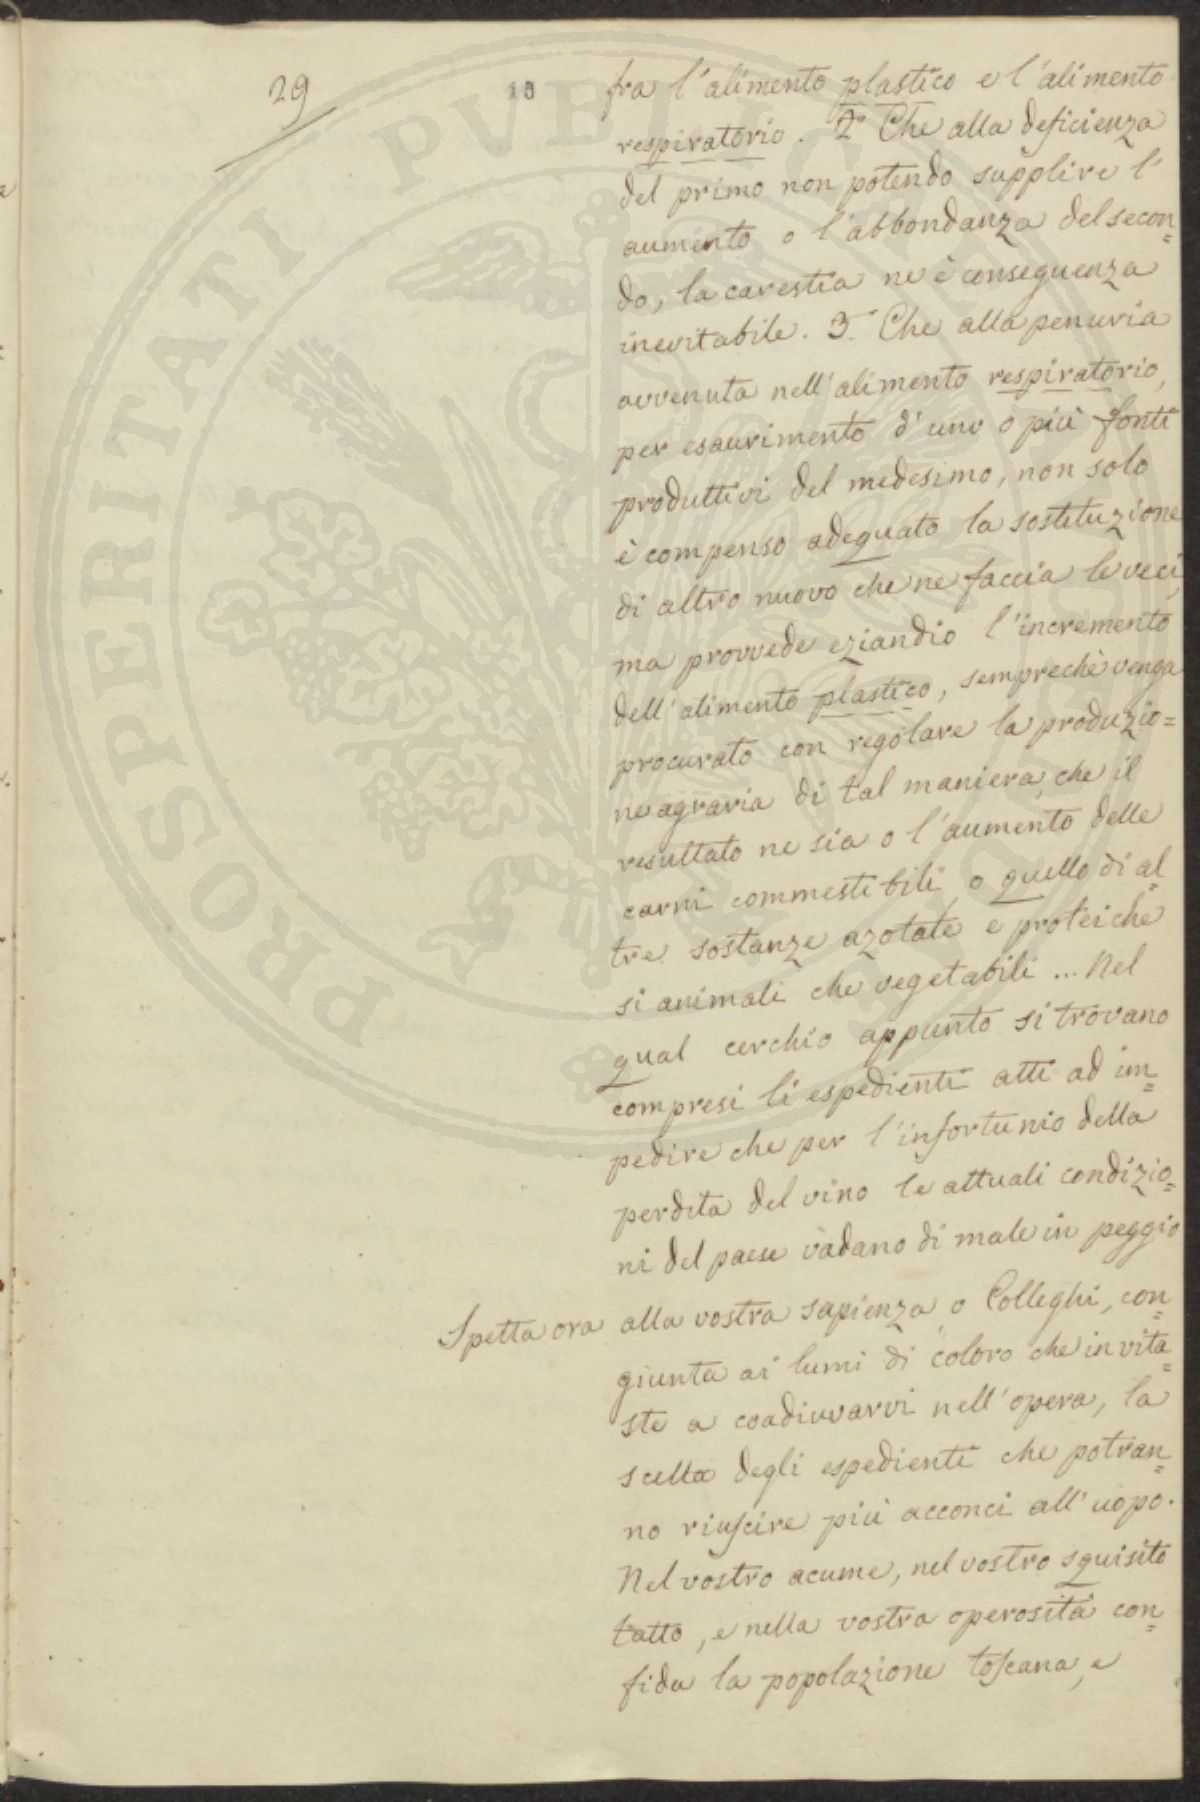 29
10
fra l'alimento plastico e l'alimento
respiratorio. 2.° Che alla deficienza
del primo non potendo supplire l'
aumento o l'abbondanza del secon=
do, la carestia ne è conseguenza
inevitabile. 3.° Che alla penuria
avvenuta nell'alimento respiratorio,
per esaurimento d'uno o più fonti
produttivi del medesimo, non solo
è compenso adeguato la sostituzione
di altro nuovo che ne faccia le veci,
ma provvede eziandio l'incremento
dell'alimento plastico, semprechè venga
procurato con regolare la produzio=
ne agraria di tal maniera, che il
resultato ne sia o l'aumento delle
carni commestibili, o quello di al=
tre sostanze azotate e proteiche
si animali che vegetabili ... Nel
qual cerchio appunto si trovano
compresi li espedienti atti ad im=
pedire che per l'infortunio della
perdita del vino le attuali condizio=
ni del paese vadano di male in peggio
Spetta ora alla vostra sapienza, o Colleghi, con=
giunta ai lumi di coloro che invita=
ste a coadiuvarvi nell'opera, la
scelta degli espedienti che potran=
no riuscire più acconci all'uopo.
Nel vostro acume, nel vostro squisito
tatto, e nella vostra operosità con=
fida la popolazione toscana, e
PROSPERITATI PVBL